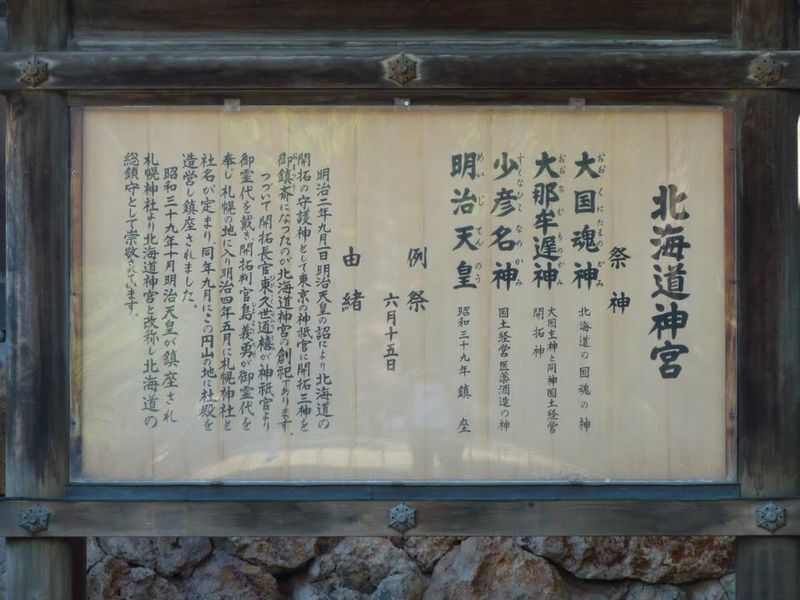 北海道神宮
祭神
おおくにたまのかみ
大国魂神
北海道の国魂の神
おおなむちのかみ
大那牟遅神
大国主神と同神国土経営
開拓神
すくなひこなのかみ
少彦名神
国土経営医薬酒造の神
めいじてんのう
明治天皇
昭和三十九年鎮座
例祭
六月十五日
由緒
明治二年九月一日明治天皇の詔により北海道の
開拓の守護神として東京の神祇官に開拓三神を
御鎮斎になったのが北海道神宮の創祀であります。
つづいて開拓長官東久世道禧が神祇官より
御霊代を戴き開拓判官島義勇が御霊代を
奉じ札幌の地に入り明治四年五月に札幌神社と
社名が定まり、同年九月にこの円山の地に社殿を
造営し鎮座されました。
昭和三十九年十月明治天皇が鎮座され
札幌神社より北海道神宮と改称し北海道の
総鎮守として崇敬されています。